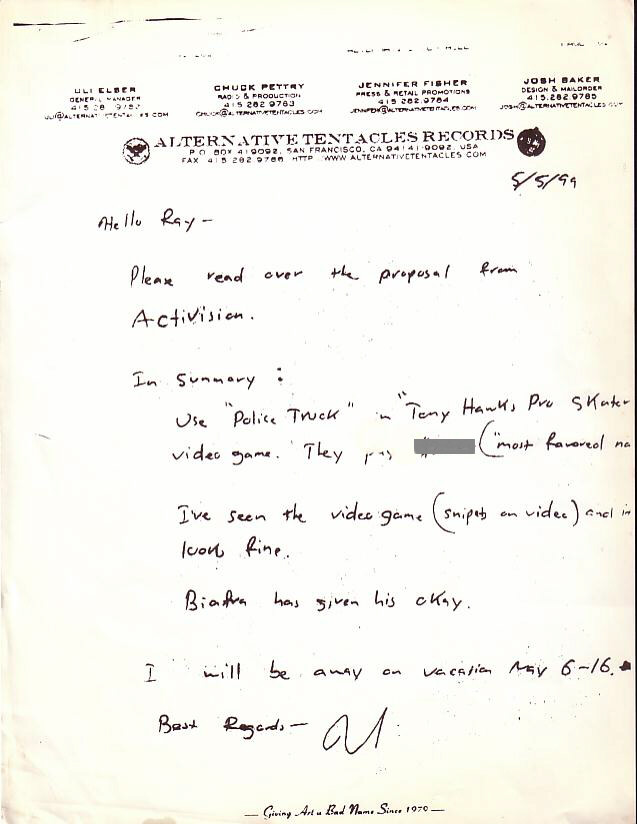 ULI ELSER CHUCK PETTRY JENNIFER FISHER JOSH BAKER
GENERAL MANAGER RADIO & PRODUCTION PRESS & RETAIL PROMOTIONS DESIGN & MAILORDER
415 282 9783 415 282 9784 415 282 9785
CHUCK@ALTERNATIVETENTACLES.COM JENNIFER@ALTERNATIVETENTACLES.COM
ALTERNATIVE TENTACLES RECORDS
P.O. BOX 419092, SAN FRANCISCO, CA 94141-9092, USA
FAX 415 282 9786 HTTP WWW.ALTERNATIVETENTACLES.COM
5/5/99
Hello Ray -
Please read over the proposal from
Activision.
In Summary :
Use "Police Truck" in "Tony Hawks Pro Skater
video game. They ("most favored na
I've seen the video game (snipets on video) and
look fine.
Biafra has given his okay.
I will be away on vacation May 6-16.
Best Regards -
— Giving Art a Bad Name Since 1979 —